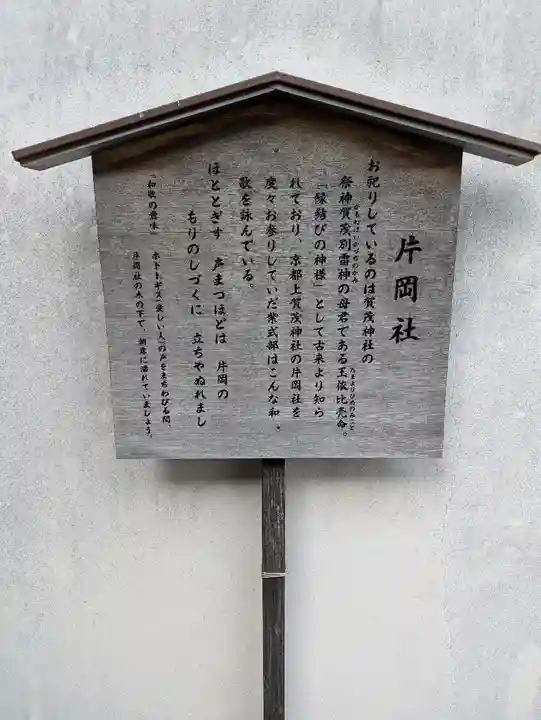 片岡社
お祀りしているのは賀茂神社の
祭神賀茂別雷神の母君である玉依比売命。
かもわけいかづちのかみ
たまよりひめのみこと
「縁結びの神様」として古来より知ら
れており、京都上賀茂神社の片岡社を
度々お参りしていた紫式部はこんな和
歌を詠んでいる。
ほととぎす 声まつほどは 片岡の
もりのしづくに 立ちやぬれまし
「和歌の意味」
ホトトギス(愛しい人)の声をまちわびる間、
片岡社の木の下で、朝露に濡れていましょう。